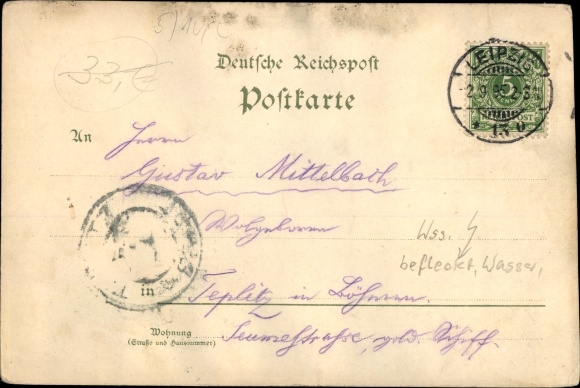 33,-
Deutsche Reichspost
Postkarte
LEIPZIG
5
An
Herrn
Gustav Mittelbach
Wohlgeboren
Wss.
befleckt, Wasser,
in Teplitz in Böhmen.
Wohnung
(Straße und Hausnummer)
Seumestrasse, gold. Schiff.